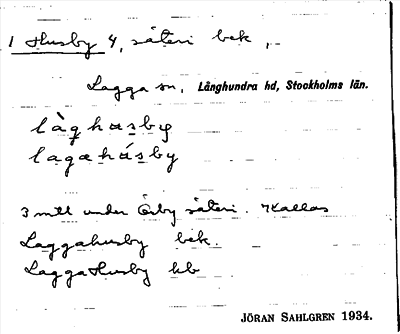 1 Husby 4, säteri bek.,
Lagga sn, Långhundra hd, Stockholms län.
3 mtl under Örby säteri. Kallas
Laggahusby bek.
LaggaHusby hb
JÖRAN SAHLGREN 1934.